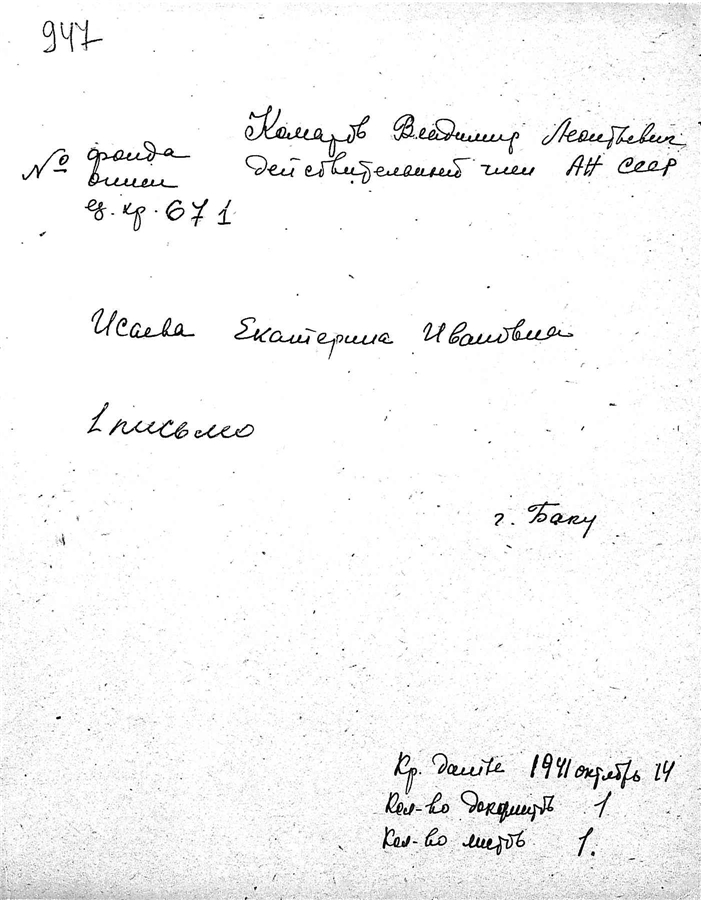 947
Комаров Владимир Леонтьевич
№ фонда действительный член АН СССР
описи
ед. хр. 671
Исаева Екатерина Ивановна
1 письмо
г. Баку
Кр. даты 1941 октябрь 14
Кол-во документов 1
Кол-во листов 1.